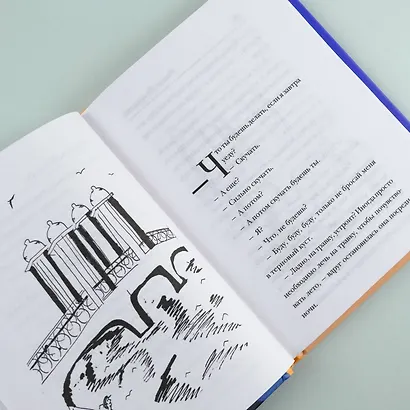 – Что ты будешь делать, если я завтра
уеду?
– Скучать.
– А еще?
– Сильно скучать.
– А потом?
– А потом скучать будешь ты.
– Я?
– Что, не будешь?
– Буду, буду, буду, только не бросай меня
в терновый куст.
– Ладно, на траву, устроит? Иногда просто
необходимо лечь на травку, чтобы почувство-
вать лето, – вдруг остановилась она посреди
ночи.